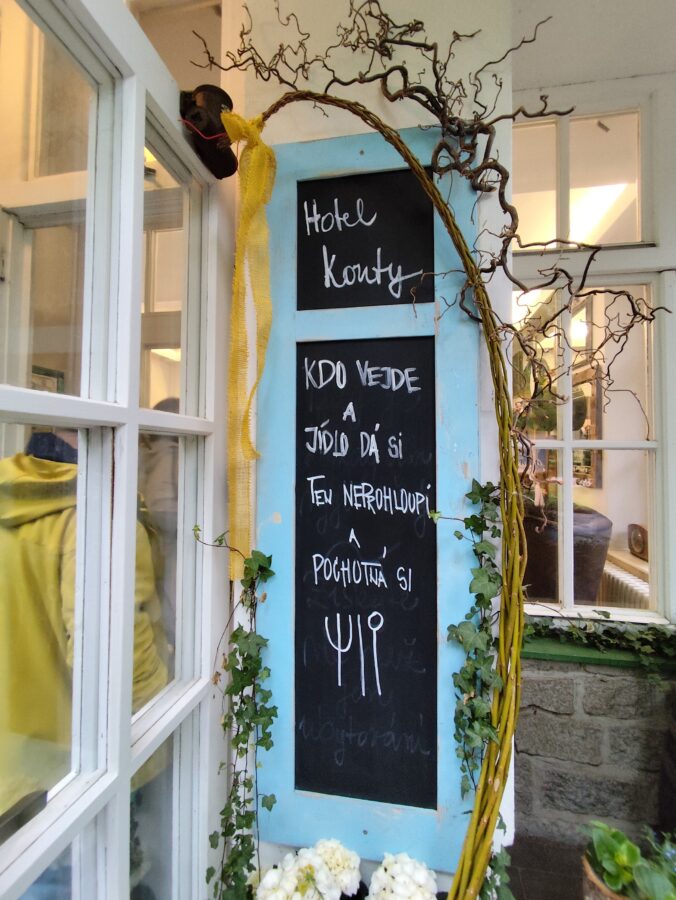 Hotel
Kouty
KDO VEJDE
A
JÍDLO DÁ SI
TEN NEPROHLOUPÍ
A
POCHOTNÁ SI
ubytování